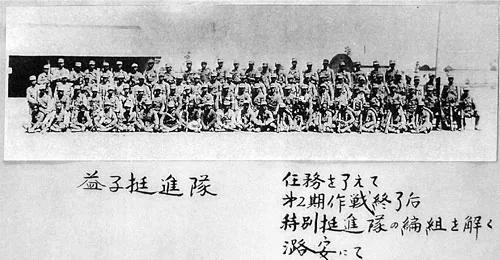 益子挺進隊
任務を了えて
第2期作戦終了后
特別挺進隊の編組を解く
潞安にて